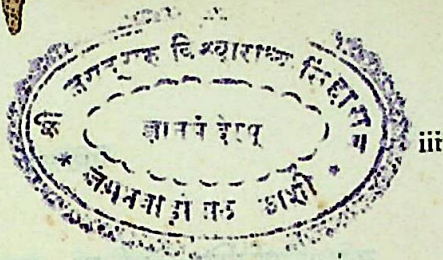 श्री जगद्गुरु विश्वाराध्य सिंहासन
ज्ञान मंदिर
* जंगमवाड़ी मठ काशी *
iii